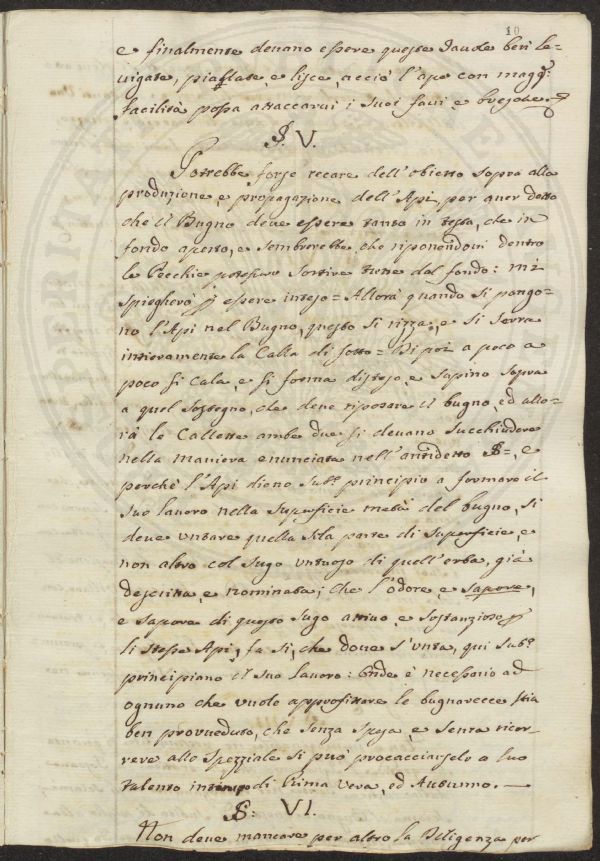 10
e finalmente devano essere queste Tavole ben le=
vigate, piallate, e lisce, acciò l'Ape con magg:
facilità possa attaccarvi i suoi favi, e bugole.
§. V.
Potrebbe forse recare dell'obietto sopra alla
produzione, e propagazione dell'Api, per aver detto
che il Bugno deve essere tanto in testa, che in
fondo aperto, e sembrerebbe, che riponendovi dentro
le Pecchie potessero sortire tutte dal fondo: mi
spiegherò p essere inteso = Allora quando si pongo=
no l'Api nel Bugno, questo si rizza, e si serra
intieramente la Calla di sotto = Di poi a poco a
poco si cala, e si forma disteso, e supino sopra
a quel sostegno, che deve riposare il bugno, ed allo=
ra le Callette ambe due si devano succhiudere
nella maniera enunciata nell'antidetto §=, e
perchè l'Api dieno sub.o principio a formare il
suo lavoro nella superficie metà del bugno, si
deve untare quella sola parte di superficie, e
non altro col sugo untuoso di quell'erba, già
descritta, e nominata; Che l'odore, e sapore,
e sapore di questo sugo attivo, e sostanzioso p
li stesse Api, fa si, che dove s'unta, qui sub.o
principiano il suo lavoro: Onde è necessario ad
ognuno che vuole approfittare le bugnarecce stia
ben provveduto, che senza spesa, e senza ricor=
rere allo Spezziale si può procacciarselo a suo
talento in tempo di Prima vera, ed Autunno. —
§: VI.
Non deve mancare per altro la Diligenza per